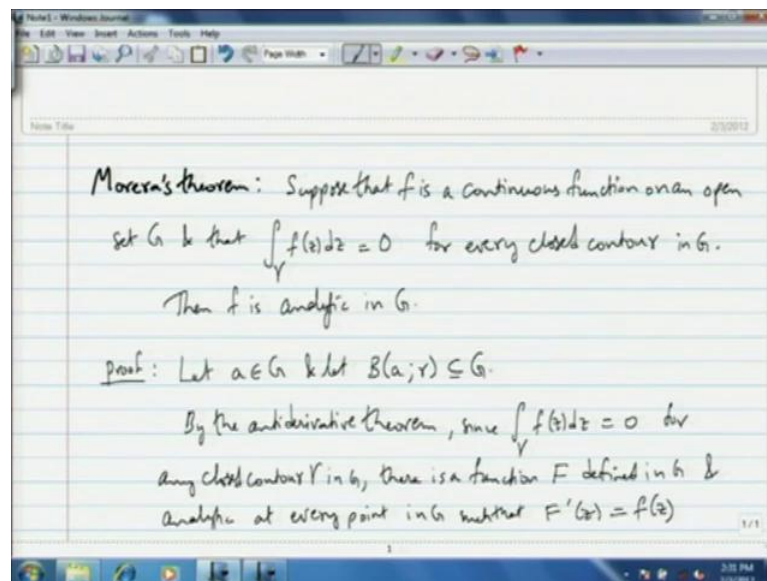 Note1 - Windows Journal
File Edit View Insert Actions Tools Help
Page Width
Note Title
2/3/2012
Morera's theorem: Suppose that f is a continuous function on an open
set G & that ∫_γ f(z)dz = 0 for every closed contour in G.
Then f is analytic in G.
Proof: Let a ∈ G & let B(a; r) ⊆ G.
By the antiderivative theorem, since ∫_γ f(z)dz = 0 for
any closed contour γ in G, there is a function F defined in G &
analytic at every point in G such that F'(z) = f(z)
1/1
1
2:31 PM